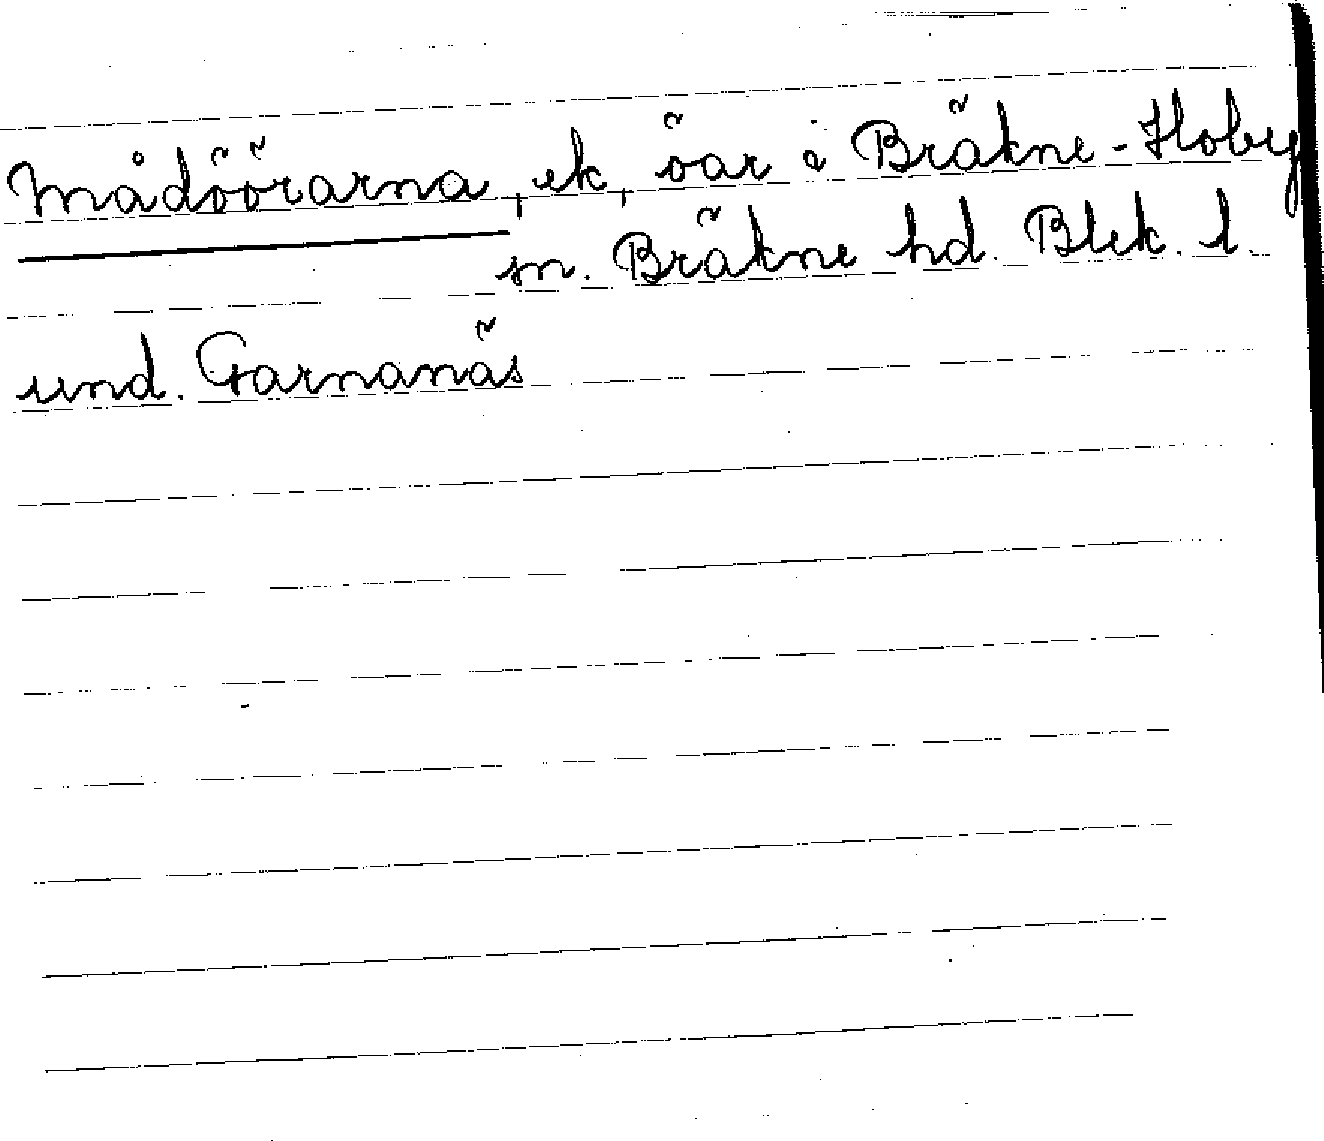 Mådöörarna, ek, öar i Bräkne-Hoby
sn. Bräkne hd. Blek. l.
und. Garnanäs